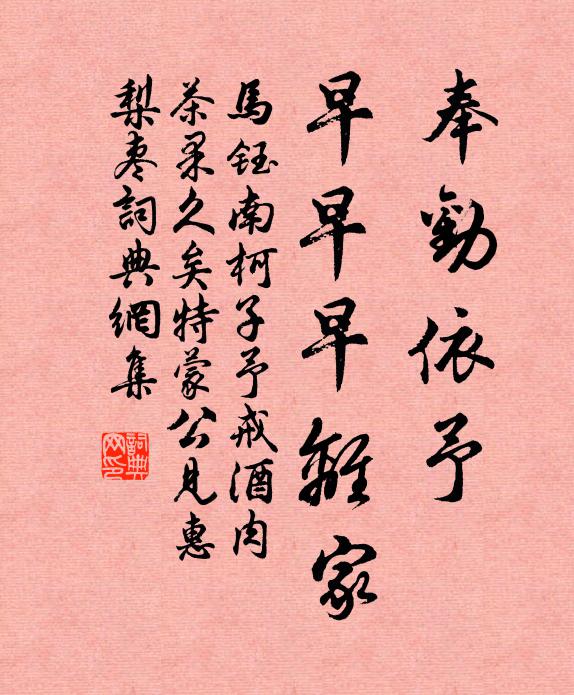 奉勸依予
早早早離家
馬鈺南柯子予戒酒肉
茶果久矣特蒙公見惠
梨棗詞典網集
詞典网印